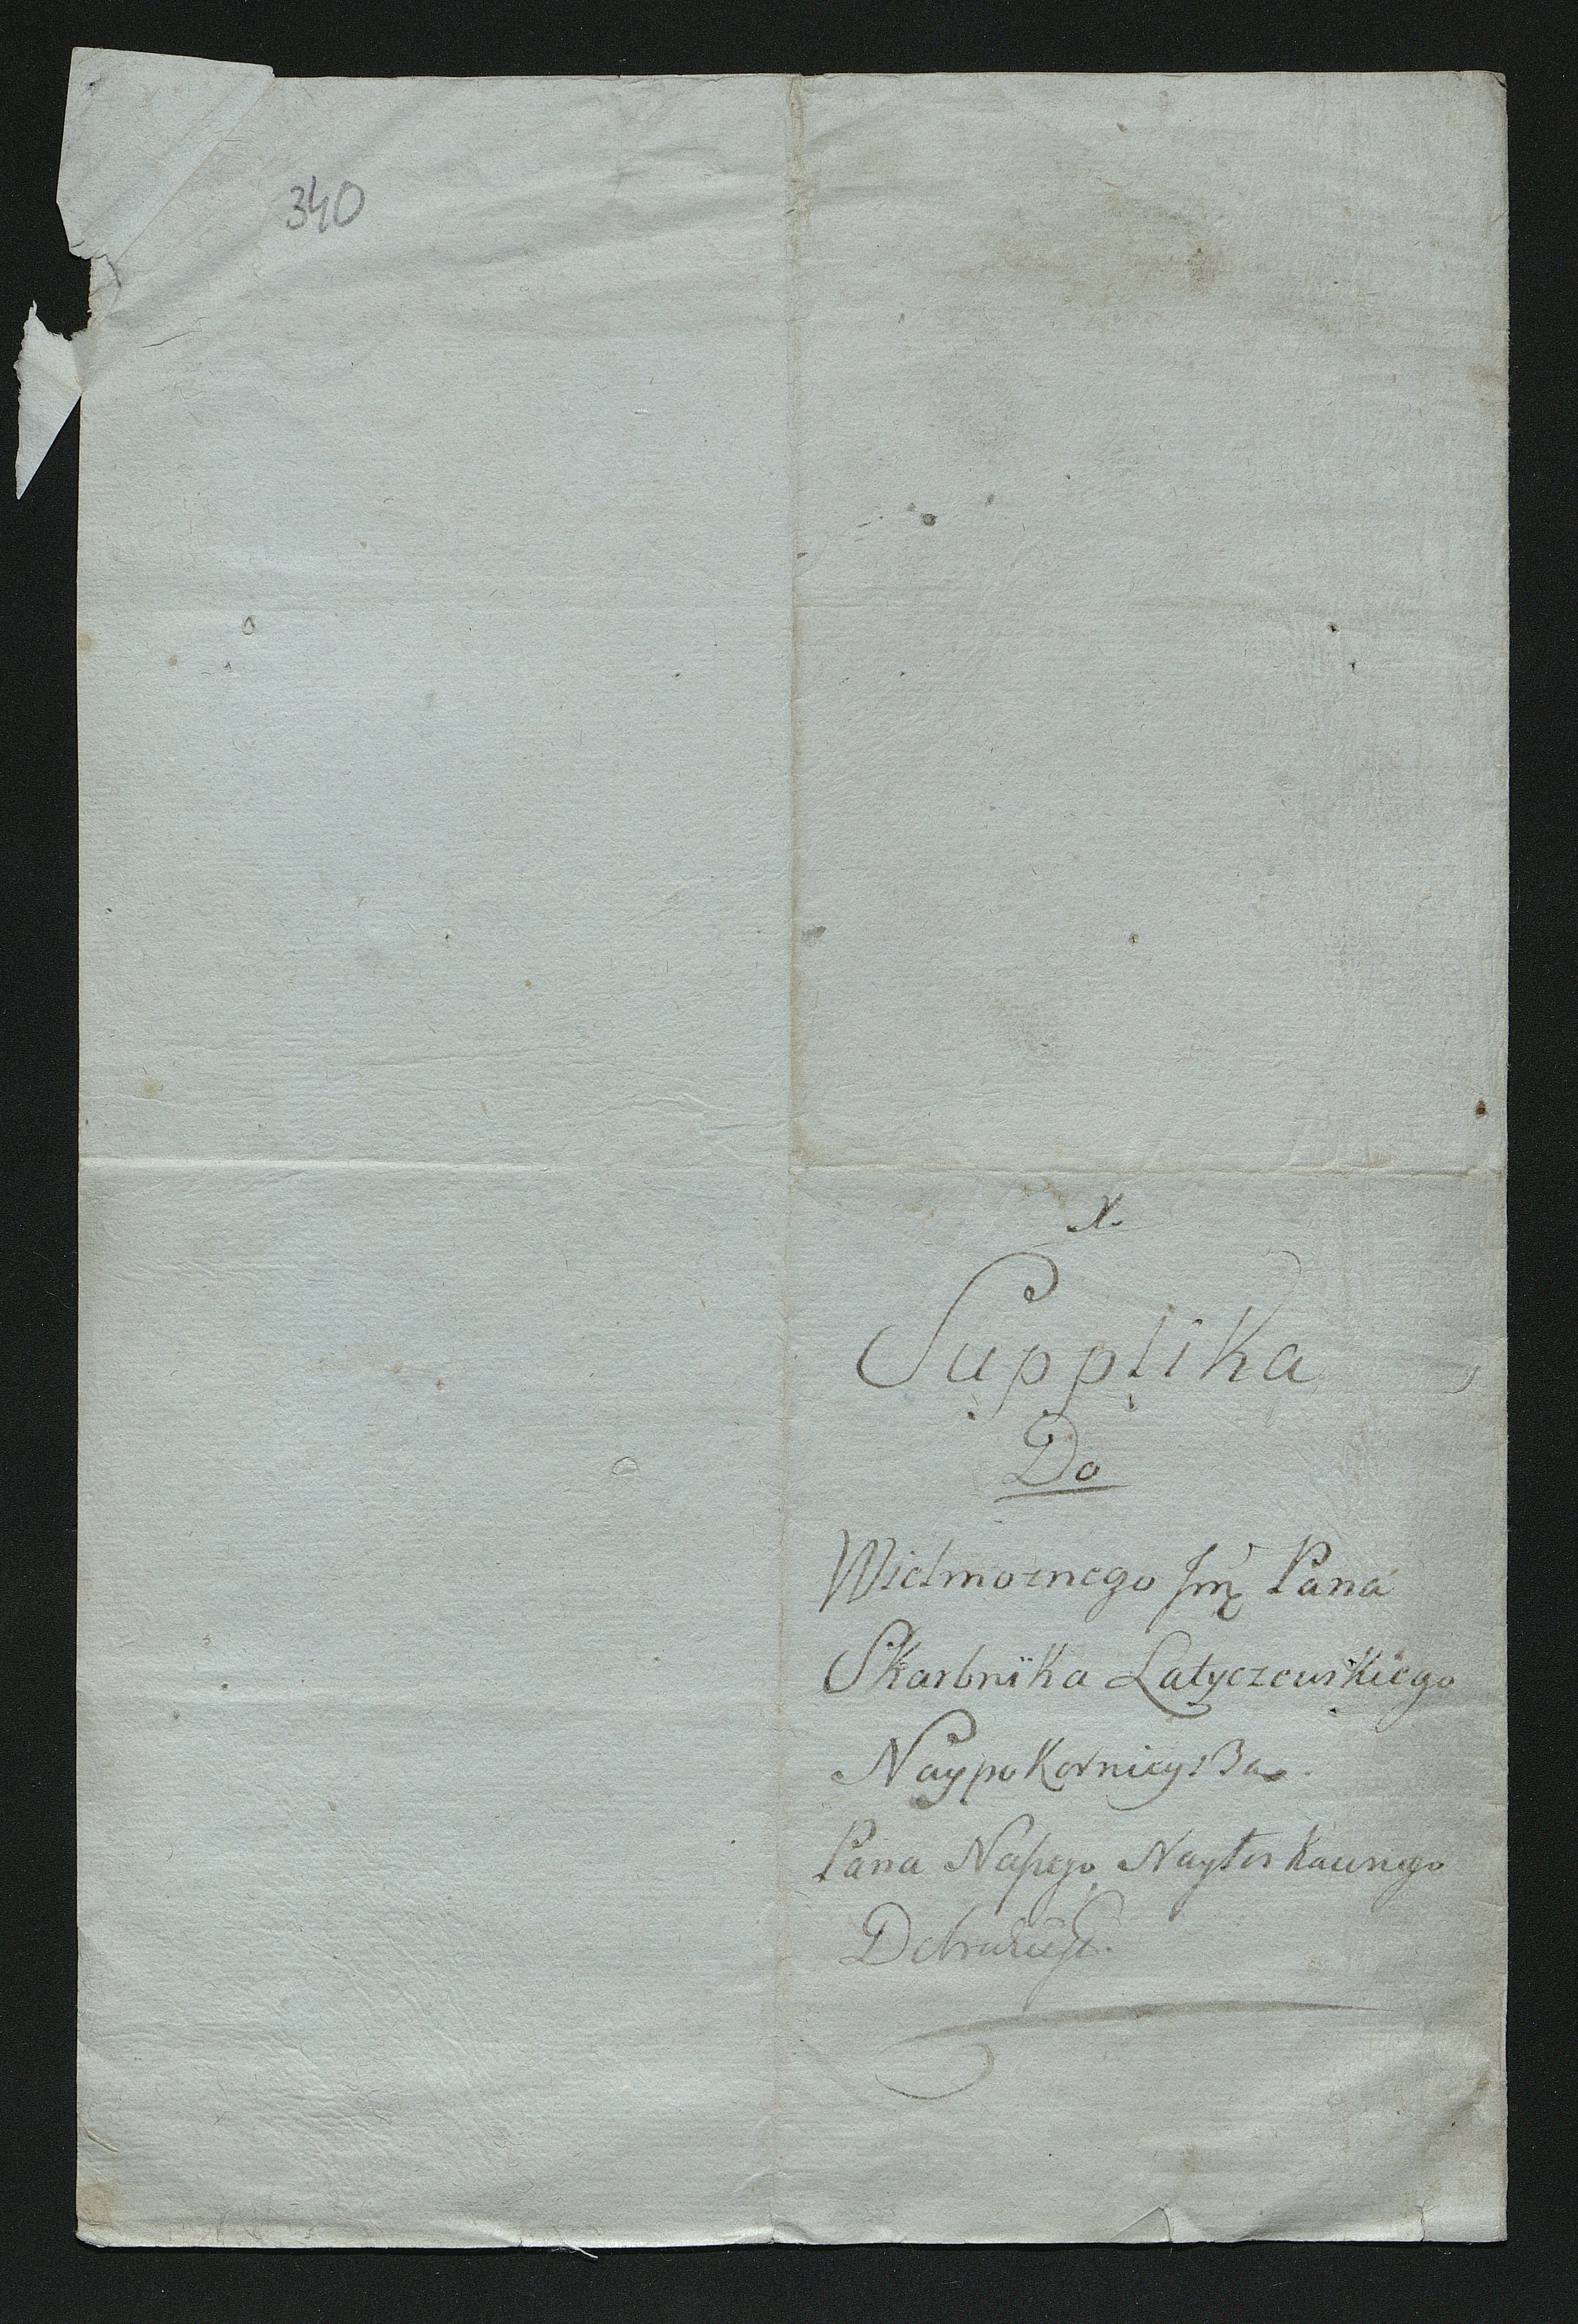 340
.X.
Supplika
Do
Wielmoznego Jmę Pana
Skarbnika Latyczewskiego
Naypokornieysza.
Pana Naszego Nayłaskawszego